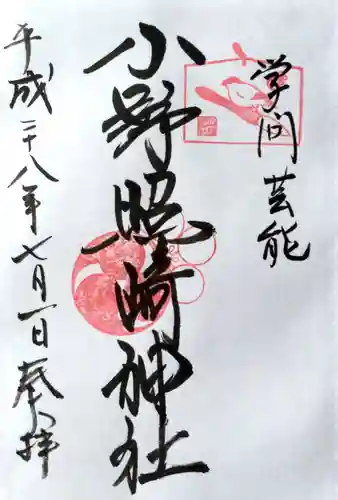 学問芸能
小野照崎神社
平成二十八年七月一日奉拝